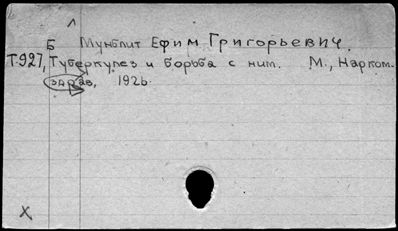 Б Мунблит Ефим Григорьевич.
Т.927, Туберкулез и борьба с ним. М., Нарком.
здрав, 1926.
X